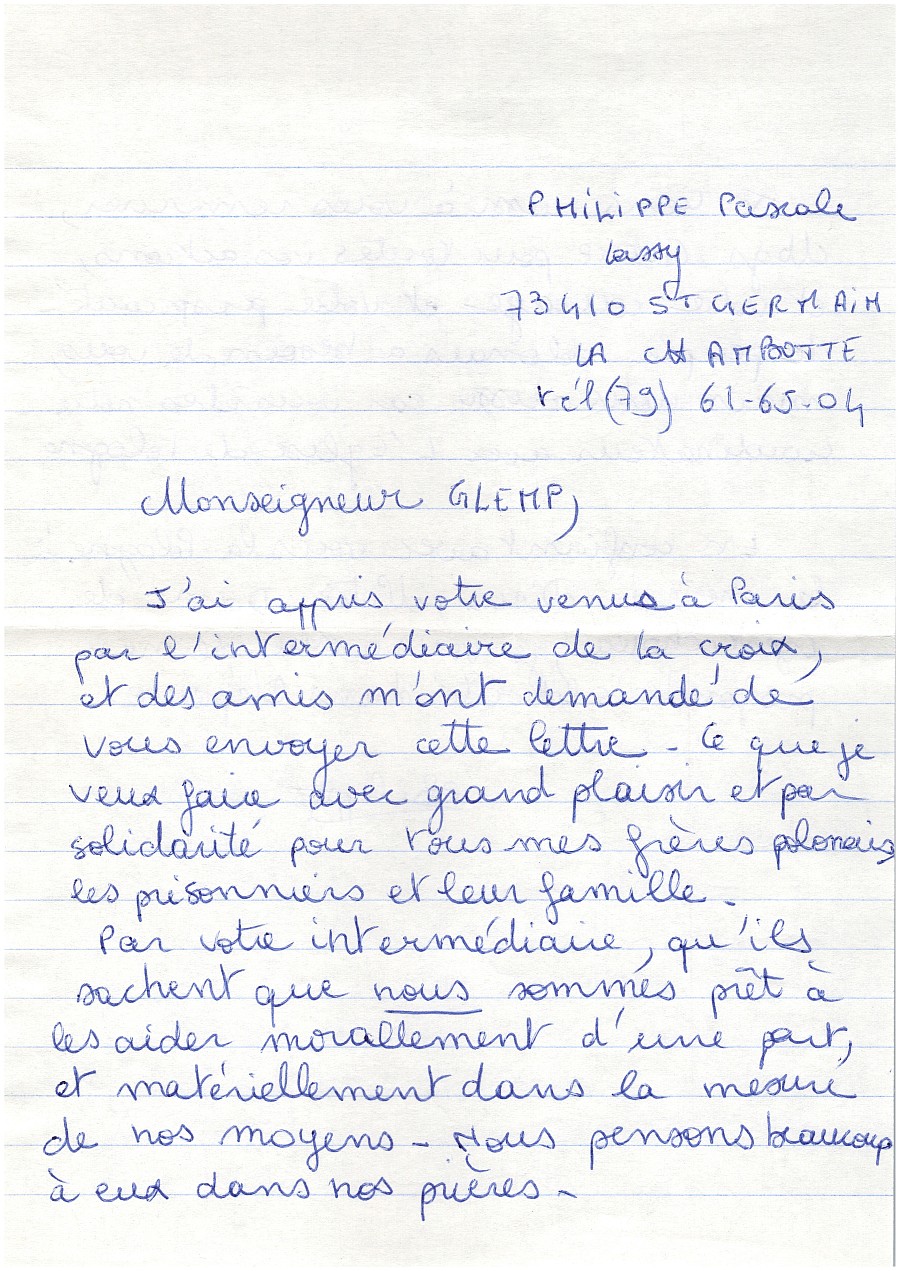 PHILIPPE Pascale
Lassy
73410 ST GERMAIN
LA CHAMBOTTE
tél (79) 61-65-04
Monseigneur GLEMP,
J'ai appris votre venue à Paris
par l'intermédiaire de la croix,
et des amis m'ont demandé de
vous envoyer cette lettre - Ce que je
veux faire avec grand plaisir et par
solidarité pour tous mes frères polonais,
les prisonniers et leur famille -
Par votre intermédiaire, qu'ils
sachent que nous sommes prêt à
les aider morallement d'une part,
et matériellement dans la mesure
de nos moyens - Nous pensons beaucoup
à eux dans nos prières -